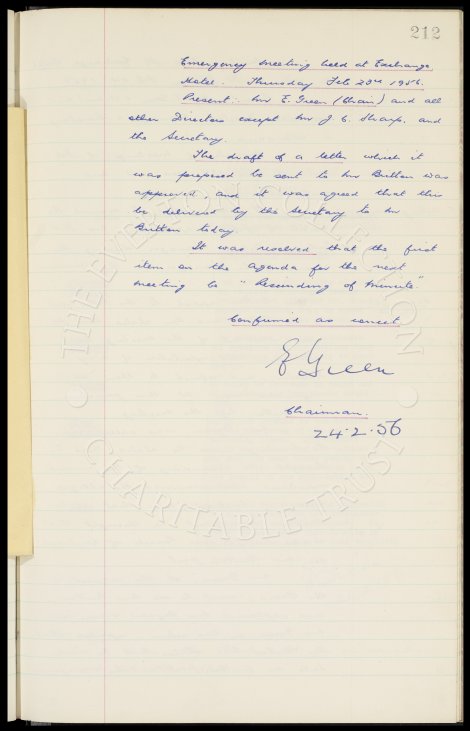 212
Emergency meeting held at Exchange
Hotel. Thursday Feb 23rd 1956.
Present:- Mr E. Green (Chair) and all
other Directors except Mr J. C. Sharp. and
the Secretary.
The draft of a letter which it
was proposed be sent to Mr Britton was
approved, and it was agreed that this
be delivered by the Secretary to Mr
Britton today.
It was resolved that the first
item on the agenda for the next
meeting be "Rescinding of minute"
Confirmed as correct
E Green
Chairman.
24.2.56
THE EVERTON COLLECTION
CHARITABLE TRUST